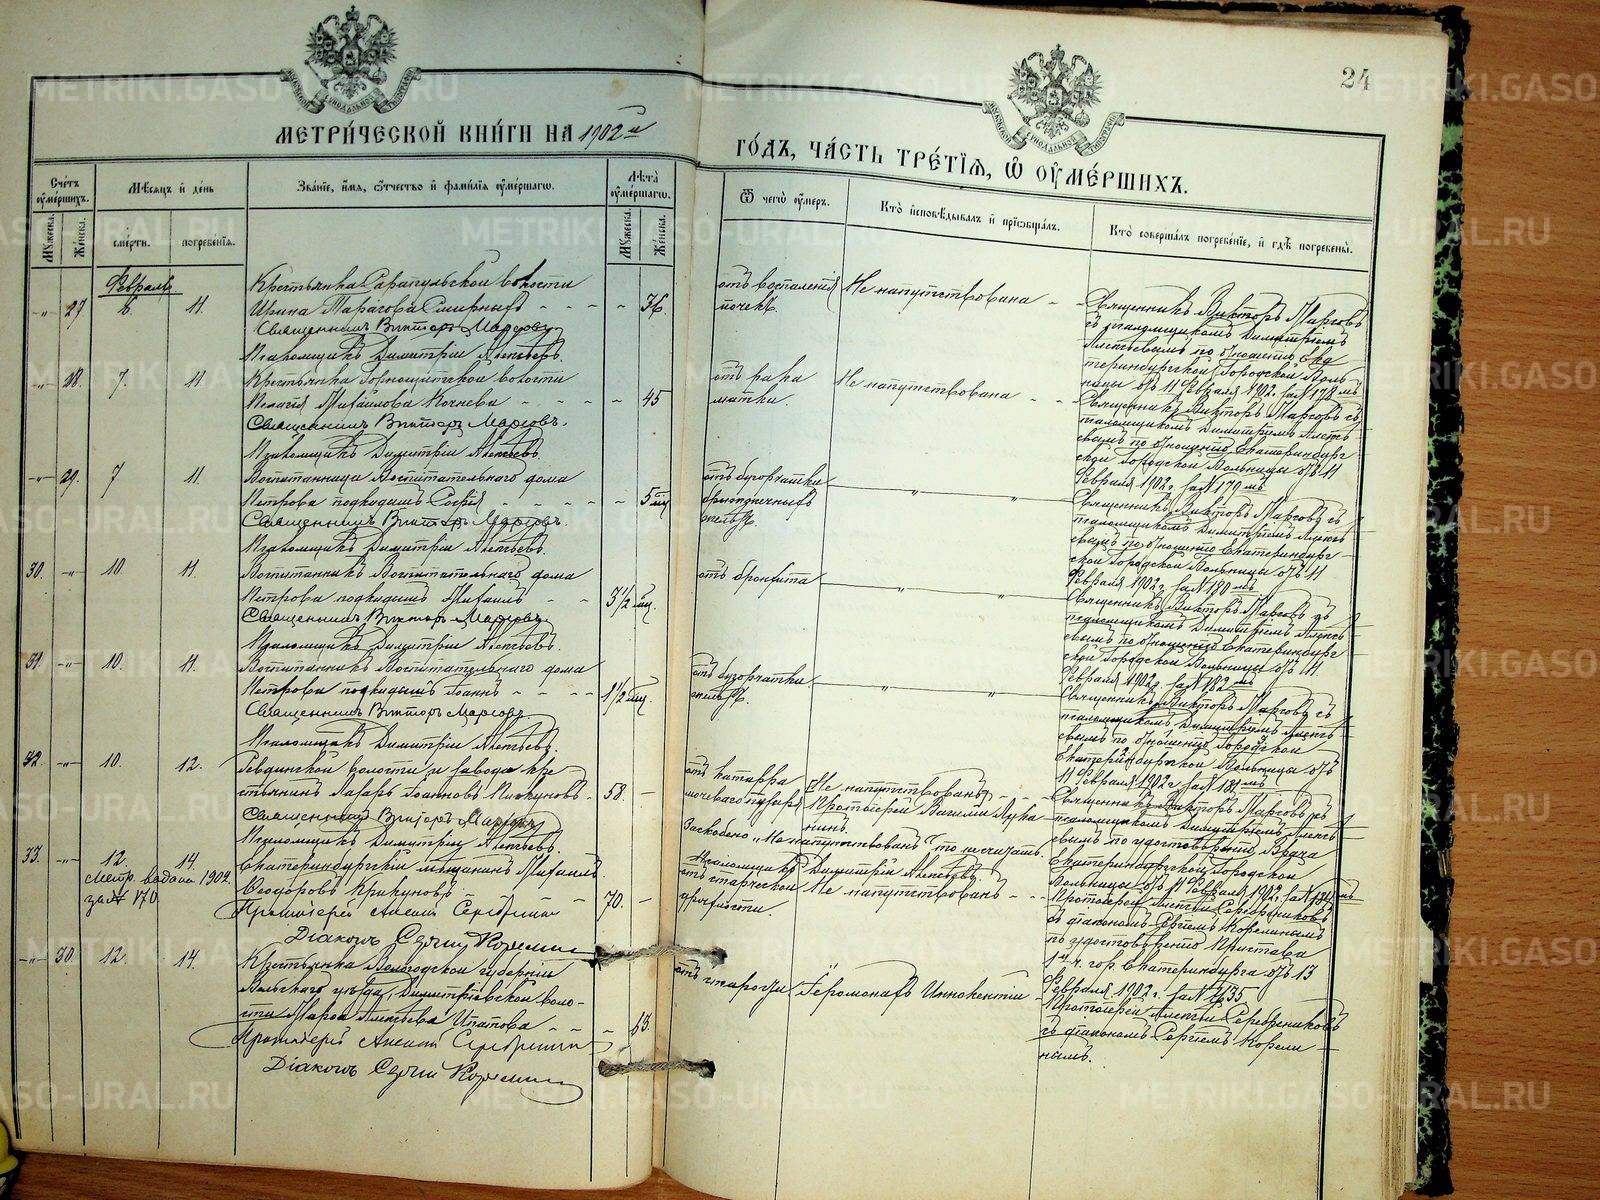 24
МЕТРИ́ЧЕСКОЙ КНИ́ГИ НА 1902 й
ГО́ДЪ, ЧА́СТЬ ТРЕ́ТІѦ, Ѡ ОУМЕ́РШИХЪ.
Счетъ оумершихъ.
Мѣсяцъ и день
Званіе, имя, отчество и фамилія оумершагѡ.
Лѣта оумершагѡ.
Ѿ чегѡ оумеръ.
Кто исповѣдывалъ и пріобщалъ.
Кто совершалъ погребеніе, и гдѣ погребены.
Мужеска.
Женска.
смерти.
погребенія.
Мужеска.
Женска.
Февраль
27 6. 11.
Крестьянка Сарапульской волости
Ирина Тарасова Смирных - - - 36.
Священникъ Викторъ Марсовъ
Псаломщикъ Димитрій Алексѣевъ.
отъ воспаленія
почекъ.
Не напутствована -
Священникъ Викторъ Марсовъ
съ псаломщикомъ Димитріемъ
Алексѣевымъ по отношенію Ека
теринбургской Городской Боль
ницы отъ 11 Февраля 1902 г. за №
28. 7. 11
Крестьянка Горнощитской волости
Пелагія Михайлова Кочнева - - - - 45
Священникъ Викторъ Марсовъ.
Псаломщикъ Димитрій Алексѣевъ.
отъ рака
матки.
Не напутствована - -
Священникъ Викторъ Марсовъ съ
псаломщикомъ Димитріемъ Алексѣ-
евымъ по отношенію Екатеринбург
ской Городской Больницы отъ 11
Февраля 1902 г. за №
29. 7 11.
Воспитанница Воспитательнаго дома
Петрова подкидышъ Софія - - - - 5 мц
Священникъ Викторъ Марсовъ.
Псаломщикъ Димитрій Алексѣевъ.
отъ бугорчатки
брыжеечныхъ
железъ.
Священникъ Викторъ Марсовъ съ
псаломщикомъ Димитріемъ Алексѣ
евымъ по отношенію Екатеринбург
ской Городской Больницы отъ 11
Февраля 1902 г. за № 180 мъ
30. 10. 11.
Воспитанникъ Воспитательнаго дома
Петрова подкидышъ Михаилъ - - 3 1/2 мц.
Священникъ Викторъ Марсовъ
Псаломщикъ Димитрій Алексѣевъ.
отъ бронхита
Священникъ Викторъ Марсовъ съ
псаломщикомъ Димитріемъ Алексѣ
евымъ по отношенію Екатеринбург
ской Городской Больницы отъ 11
Февраля 1902 г. за № 182 мъ
31. 10. 11.
Воспитанникъ Воспитательнаго дома
Петрова подкидышъ Іоаннъ - - - 1 1/2 мц.
Священникъ Викторъ Марсовъ.
Псаломщикъ Димитрій Алексѣевъ.
отъ бугорчатки
железъ.
Священникъ Викторъ Марсовъ съ
псаломщикомъ Димитріемъ Алексѣ
евымъ по отношенію Городской
Екатеринбургской Больницы отъ
11 Февраля 1902 г. за № 181 мъ
32. 10. 12.
Ревдинской волости и завода кре-
стьянинъ Лазарь Іоанновъ Пискуновъ - 58.
Священникъ Викторъ Марсовъ
Псаломщикъ Димитрій Алексѣевъ.
отъ катарра
мочеваго пузыря
Не напутствованъ - -
Протоіерей Василій Лука-
нинъ.
Заскоблено „Не напутствованъ" то не считать.
Псаломщикъ Димитрій Алексѣевъ.
Священникъ Викторъ Марсовъ съ
псаломщикомъ Димитріемъ Алексѣ
евымъ по удостовѣренію Врача
Екатеринбургской Городской
Больницы отъ 11 Февраля 1902 г. за №
33. 12. 14.
Метр. выдана 1902.
за № 170.
Екатеринбургскій мѣщанинъ Михаилъ
Ѳеодоровъ Крикуновъ - - - 70.
Протоіерей Алексій Серебренниковъ
Діаконъ Сергій Корелинъ
отъ старческой
дряхлости.
Не напутствованъ - -
Протоіерей Алексій Серебрениковъ
съ діакономъ Сергіемъ Корелинымъ
по удостовѣренію Пристава
1 й ч. гор. Екатеринбурга отъ 13
Февраля 1902 г. за №
30. 12. 14.
Крестьянка Вологодской губерніи
Вельскаго уѣзда, Димитріевской воло-
сти Марѳа Алексѣева Ипатова - - - 63.
Протоіерей Алексій Серебренниковъ
Діаконъ Сергій Корелинъ
отъ старости
Іеромонахъ Иннокентій -
Протоіерей Алексій Серебрениковъ
съ діакономъ Сергіемъ Корели-
нымъ.
METRIKI.GASO-URAL.RU